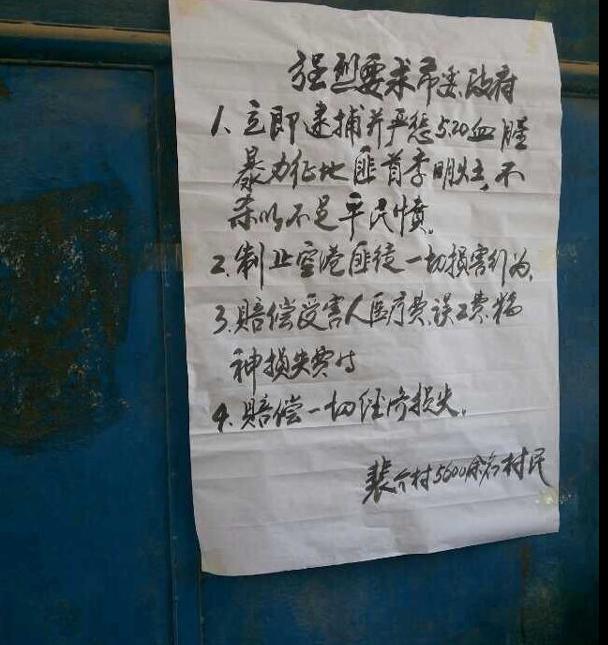 强烈要求市委政府
1、立即逮捕并严惩520血腥
暴力征地匪首李明柱,不
杀吗不足平民愤。
2.制止空港匪徒一切损害行为,
3.赔偿受害人医疗费、误工费、精
神损失费付
4.赔偿一切经济损失。
裴介村5600余名村民